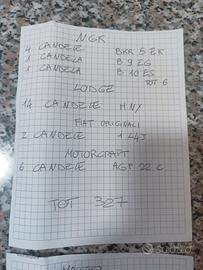 NGK
4 CANDELE BKR 5 EK
1 CANDELA B 9 EG
1 CANDELA B 10 ES
TOT 6
LODGE
14 CANDELE HNY
FIAT ORIGINALI
2 CANDELE 1 L4J
MOTORCRAFT
6 CANDELE AGP 22 C
TOT 327